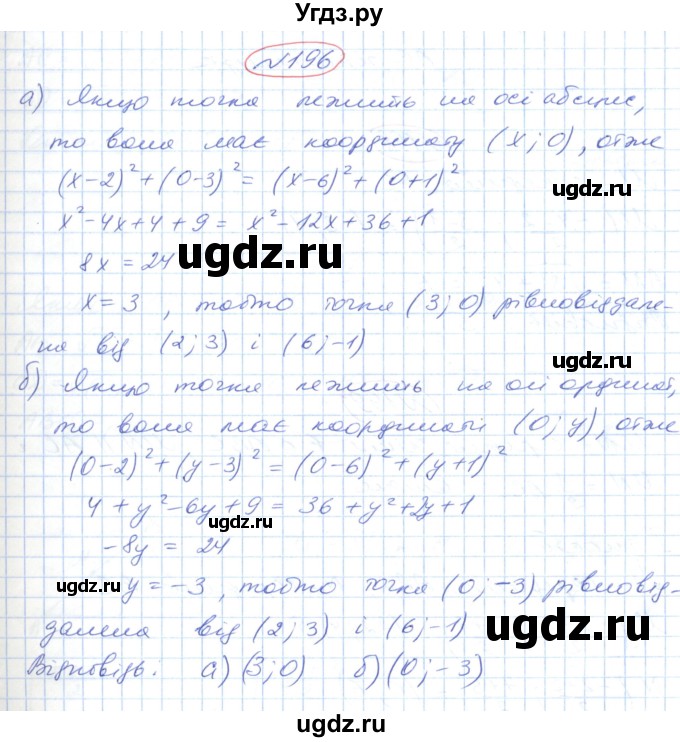 Угдз.ру
№196
а) Якщо точка лежить на осі абсцис,
то вона має координату (x; 0), отже
(x-2)²+(0-3)²= (x-6)²+(0+1)²
ugdz.ru
x²-4x+4+9 = x²-12x+36+1
ugdz.ru
8x = 24
ugdz.ru
x=3, тобто точка (3; 0) рівновіддале-
на від (2; 3) і (6; -1)
ugdz.ru
б) Якщо точка лежить на осі ординат,
то вона має координаті (0; y), отже
ugdz.ru
(0-2)²+(y-3)² = (0-6)²+(y+1)²
4+y²-6y+9 = 36+y²+2y+1
ugdz.ru
-8y = 24
ugdz.ru
y = -3, тобто точка (0; -3) рівновід-
ugdz.ru
далена від (2; 3) і (6; -1)
ugdz.ru
Відповідь: а) (3; 0) б) (0; -3)
ugdz.ru